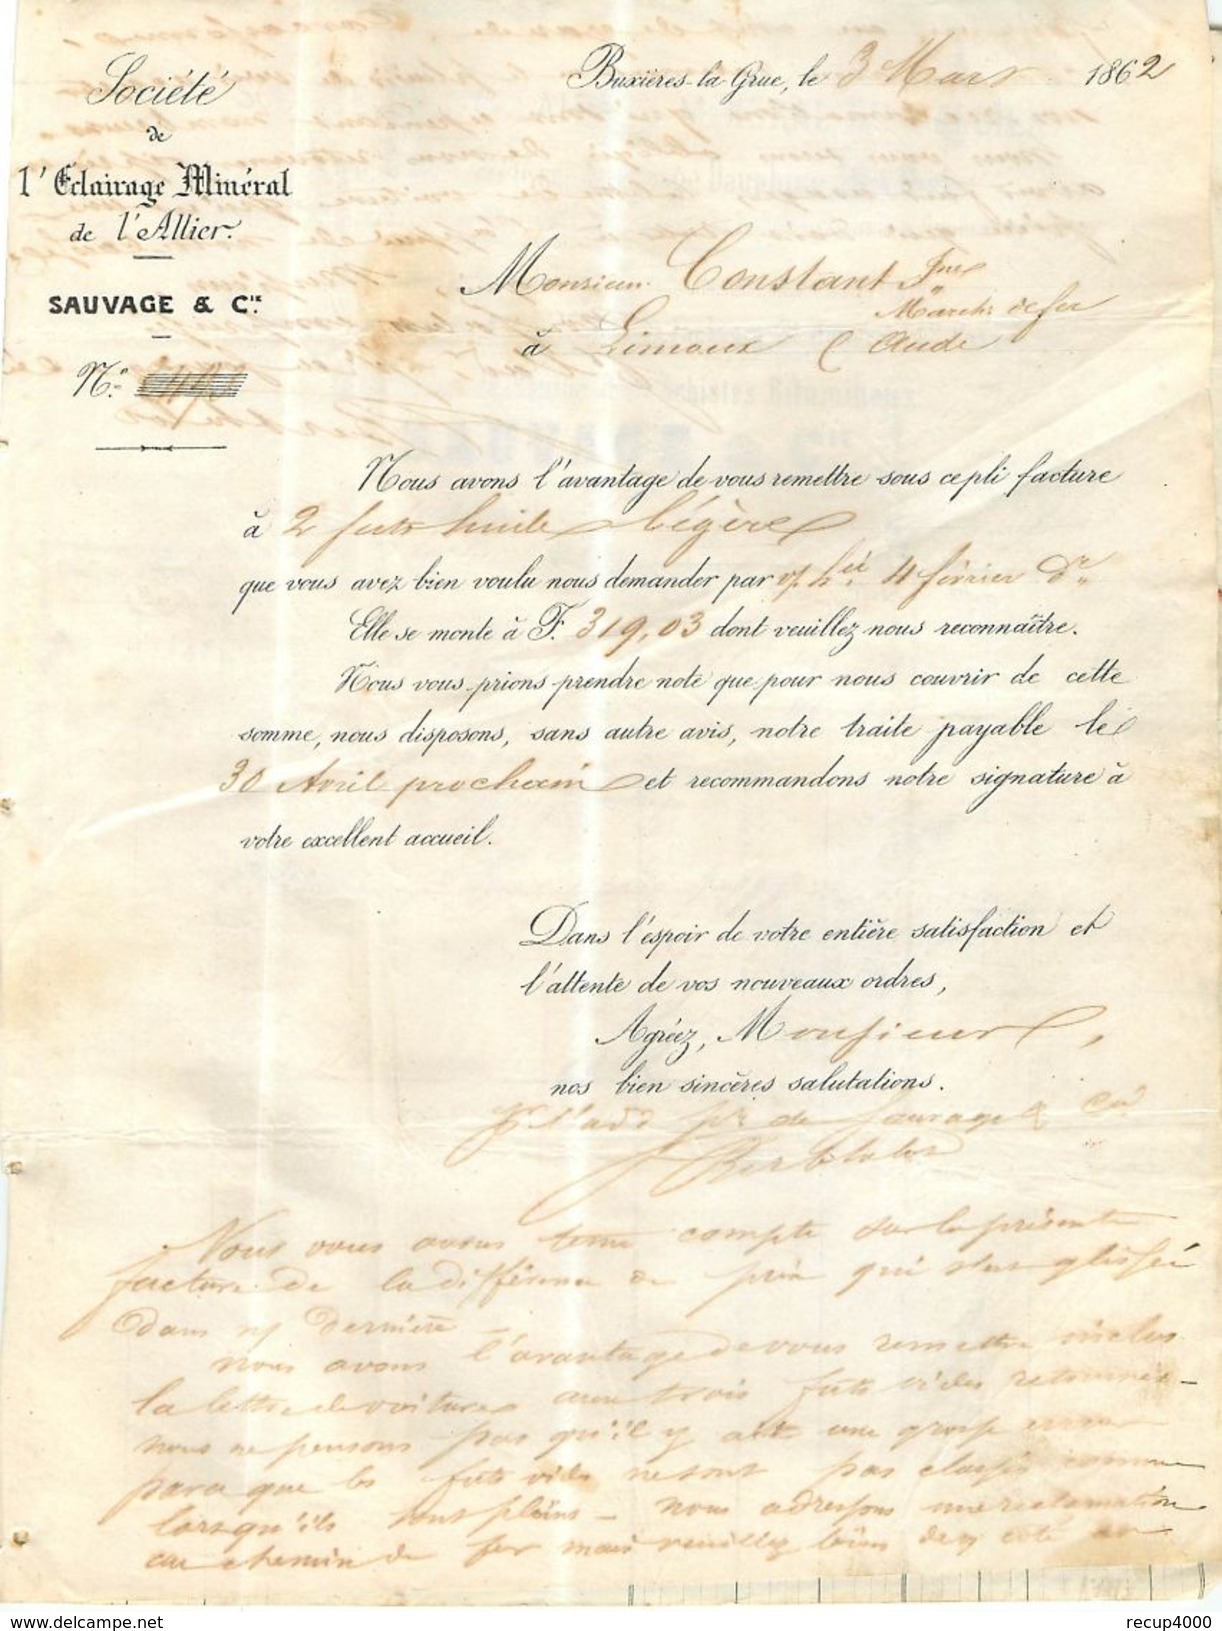 Société
de
l'Eclairage Minéral
de l'Allier.
SAUVAGE & Cie.
N°.
Buxières-la-Grue, le 3 Mars 1862
Monsieur Constant Jne
March. de fer
à Limoux (Aude
Nous avons l'avantage de vous remettre sous ce pli facture
à 2 futs huile légère
que vous avez bien voulu nous demander par 4 février dr
Elle se monte à F. 319,03 dont veuillez nous reconnaître.
Nous vous prions prendre note que pour nous couvrir de cette
somme, nous disposons, sans autre avis, notre traite payable le
30 Avril prochain et recommandons notre signature à
votre excellent accueil.
Dans l'espoir de votre entière satisfaction et
l'attente de vos nouveaux ordres,
Agréez, Monsieur,
nos bien sincères salutations.
de Sauvage & Cie
Nous vous avons tenu compte sur la présente
facture de la différence de prix qui s'est glissée
dans dernière
nous avons l'avantage de vous remettre inclus
la lettre de voiture aux trois futs vides retournés -
nous ne pensons pas qu'il y ait une grosse erreur
parce que les futs vides ne sont pas classés comme
lorsqu'ils sont pleins - nous adressons une réclamation
au chemin de fer mais veuillez bien de côté
recup4000